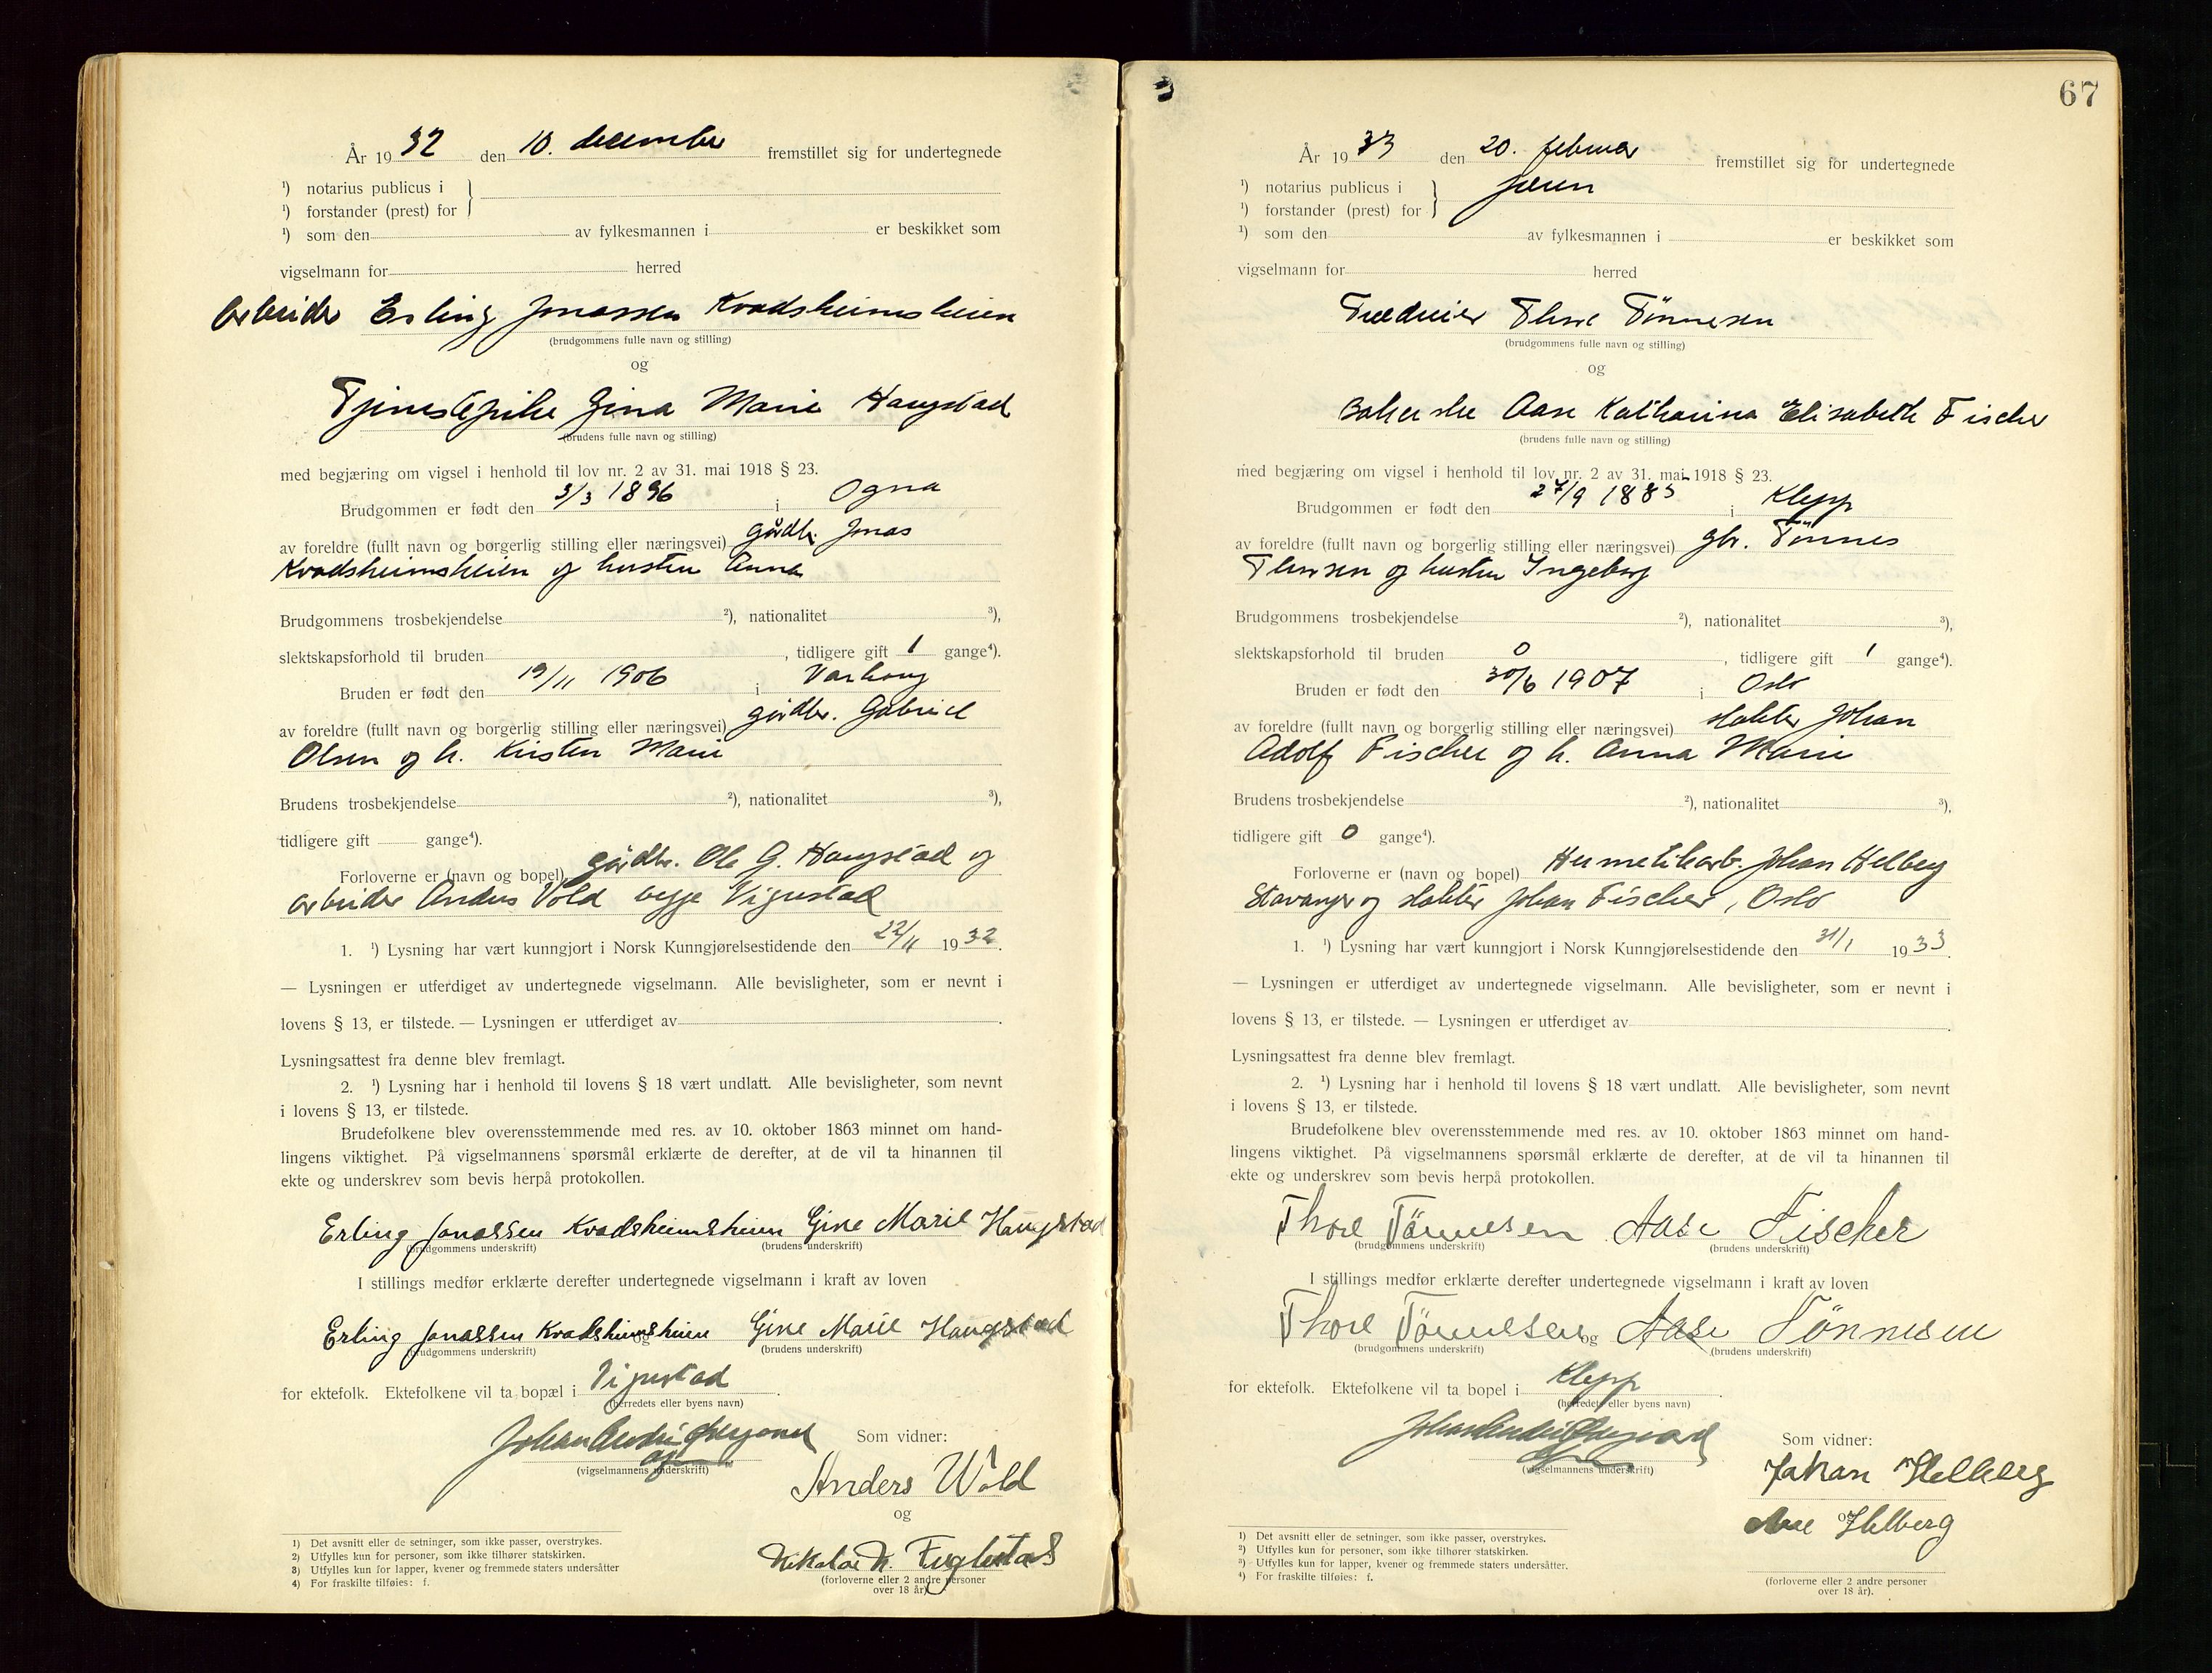 År 1932 den 10. december fremstillet sig for undertegnede
¹) notarius publicus i
¹) forstander (prest) for
¹) som den av fylkesmannen i er beskikket som
vigselmann for herred
Arbeider Erling Jonassen Kvadsheimsheien
(brudgommens fulle navn og stilling)
og
Tjenestepike Gina Marie Haugstad
(brudens fulle navn og stilling)
med begjæring om vigsel i henhold til lov nr. 2 av 31. mai 1918 § 23.
Brudgommen er født den 3/3 1896 i Ogna
av foreldre (fullt navn og borgerlig stilling eller næringsvei) gårdbr. Jonas
Kvadsheimsheien og hustru Anna
Brudgommens trosbekjendelse ²), nationalitet ³),
slektskapsforhold til bruden , tidligere gift 1 gange⁴).
Bruden er født den 19/11 1906 i Varhaug
av foreldre (fullt navn og borgerlig stilling eller næringsvei) gårdbr. Gabriel
Olsen og h. Kirsten Marie
Brudens trosbekjendelse ²), nationalitet ³),
tidligere gift gange⁴).
Forloverne er (navn og bopel) gårdbr. Ole G. Haugstad og
arbeider Anders Vold begge Vigrestad
1. ¹) Lysning har vært kunngjort i Norsk Kunngjørelsestidende den 22/11 1932.
— Lysningen er utferdiget av undertegnede vigselmann. Alle bevisligheter, som er nevnt i
lovens § 13, er tilstede. — Lysningen er utferdiget av .
Lysningsattest fra denne blev fremlagt.
2. ¹) Lysning har i henhold til lovens § 18 vært undlatt. Alle bevisligheter, som nevnt
i lovens § 13, er tilstede.
Brudefolkene blev overensstemmende med res. av 10. oktober 1863 minnet om hand-
lingens viktighet. På vigselmannens spørsmål erklærte de derefter, at de vil ta hinannen til
ekte og underskrev som bevis herpå protokollen.
Erling Jonassen Kvadsheimsheien Gine Marie Haugstad
(brudgommens underskrift) (brudens underskrift)
I stillings medfør erklærte derefter undertegnede vigselmann i kraft av loven
Erling Jonassen Kvadsheimsheien og Gine Marie Haugstad
(brudgommens underskrift) (brudens underskrift)
for ektefolk. Ektefolkene vil ta bopæl i Vigrestad .
(herredets eller byens navn)
Som vidner:
(vigselmannens underskrift)
Anders Wold
og
Nikolai N. Fuglestad
(forloverne eller 2 andre personer
over 18 år).
1) Det avsnitt eller de setninger, som ikke passer, overstrykes.
2) Utfylles kun for personer, som ikke tilhører statskirken.
3) Utfylles kun for lapper, kvener og fremmede staters undersåtter
4) For fraskilte tilføies: f.
67
År 1933 den 20. februar fremstillet sig for undertegnede
¹) notarius publicus i Jæren
¹) forstander (prest) for
¹) som den av fylkesmannen i er beskikket som
vigselmann for herred
Tredreier Thore Tønnesen
(brudgommens fulle navn og stilling)
og
Bakerske Aase Katharina Elisabeth Fischer
(brudens fulle navn og stilling)
med begjæring om vigsel i henhold til lov nr. 2 av 31. mai 1918 § 23.
Brudgommen er født den 27/9 1883 i Klepp
av foreldre (fullt navn og borgerlig stilling eller næringsvei) gbr. Tønnes
Thorsen og hustru Ingeborg
Brudgommens trosbekjendelse ²), nationalitet ³),
slektskapsforhold til bruden 0 , tidligere gift 1 gange⁴).
Bruden er født den 30/6 1907 i Oslo
av foreldre (fullt navn og borgerlig stilling eller næringsvei) slakter Johan
Adolf Fischer og h. Anna Marie
Brudens trosbekjendelse ²), nationalitet ³),
tidligere gift 0 gange⁴).
Forloverne er (navn og bopel) Hermetikarb. Johan Helberg
Stavanger og slakter Johan Fischer, Oslo
1. ¹) Lysning har vært kunngjort i Norsk Kunngjørelsestidende den 31/1 1933.
— Lysningen er utferdiget av undertegnede vigselmann. Alle bevisligheter, som er nevnt i
lovens § 13, er tilstede. — Lysningen er utferdiget av .
Lysningsattest fra denne blev fremlagt.
2. ¹) Lysning har i henhold til lovens § 18 vært undlatt. Alle bevisligheter, som nevnt
i lovens § 13, er tilstede.
Brudefolkene blev overensstemmende med res. av 10. oktober 1863 minnet om hand-
lingens viktighet. På vigselmannens spørsmål erklærte de derefter, at de vil ta hinannen til
ekte og underskrev som bevis herpå protokollen.
Thore Tönnesen Aase Fischer
(brudgommens underskrift) (brudens underskrift)
I stillings medfør erklærte derefter undertegnede vigselmann i kraft av loven
Thore Tönnesen og Aase Tönnesen
(brudgommens underskrift) (brudens underskrift)
for ektefolk. Ektefolkene vil ta bopel i Klepp .
(herredets eller byens navn)
Som vidner:
(vigselmannens underskrift)
Johan Helberg
og
Aase Helberg
(forloverne eller 2 andre personer
over 18 år).
1) Det avsnitt eller de setninger, som ikke passer, overstrykes.
2) Utfylles kun for personer, som ikke tilhører statskirken.
3) Utfylles kun for lapper, kvener og fremmede staters undersåtter.
4) For fraskilte tilføies: f.